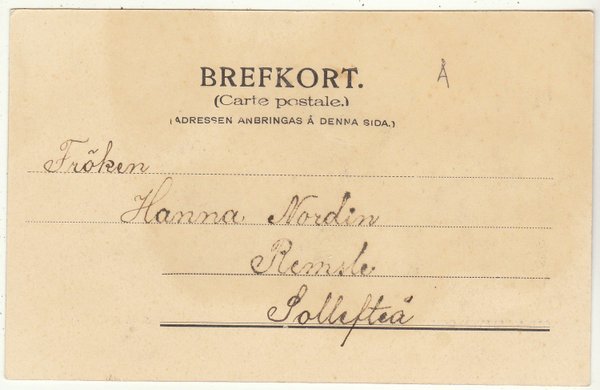 BREFKORT.
Å
(Carte postale.)
(ADRESSEN ANBRINGAS Å DENNA SIDA.)
Fröken
Hanna Nordin
Remsle
Sollefteå